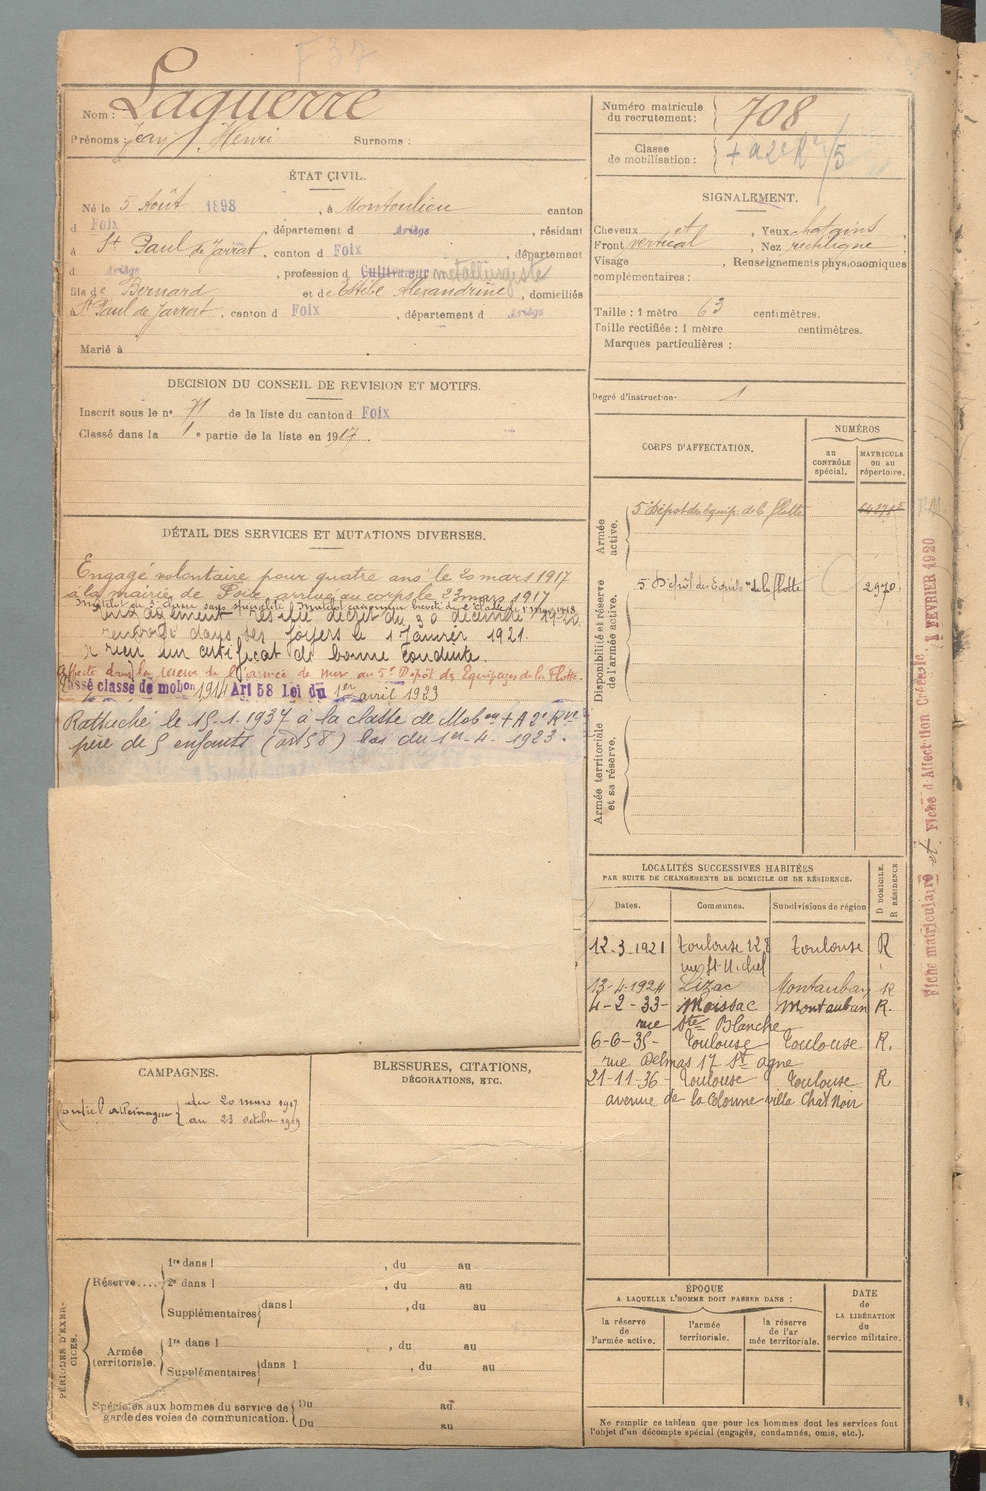 F 37
Nom : Laguerre
Prénoms : Jean, Henri Surnoms :
ÉTAT CIVIL.
Né le 5 Août 1898 , à Montoulieu canton
d Foix , département d Ariège , résidant
à St Paul de Jarrat , canton d Foix , département
d Ariège , profession d Cultivateur métallurgiste
fils de Bernard et de Estèbe Alexandrine , domiciliés
à St Paul de Jarrat , canton d Foix , département d Ariège
Marié à
DECISION DU CONSEIL DE REVISION ET MOTIFS.
Inscrit sous le n° 71 de la liste du canton d Foix
Classé dans la 1 e partie de la liste en 1917 .
DÉTAIL DES SERVICES ET MUTATIONS DIVERSES.
Engagé volontaire pour quatre ans le 20 mars 1917
à la mairie de Foix arrivé au corps le 23 mars 1917
Matelot de 3e classe sans spécialité Matelot canonnier breveté de 2e classe le 1er mars 1918
Engagement résilié décret du 30 décembre 1920
renvoyé dans ses foyers le 1 Janvier 1921.
a reçu un certificat de bonne conduite.
Affecté dans la réserve de l'armée de mer au 5e Dépôt des Equipages de la Flotte.
Passé classe de mobon 1914 Art 58 Loi du 1er avril 1923
Rattaché le 15-1-1937 à la classe de Mobon + A 2e Rve
père de 5 enfants (art 58) loi du 1er-4-1923.
CAMPAGNES.
Contre l'Allemagne { du 20 mars 1917
au 23 octobre 1919
BLESSURES, CITATIONS,
DÉCORATIONS, ETC.
PÉRIODES D'EXERCICES.
Réserve....
1re dans l , du au
2e dans l , du au
Supplémentaires { dans l , du au
Armée
territoriale.
1re dans l , du au
Supplémentaires { dans l , du au
Spéciales aux hommes du service de
garde des voies de communication.
Du au
Du au
Numéro matricule
du recrutement : 708
Classe
de mobilisation : + a 2e Rve/5
SIGNALEMENT.
Cheveux et , Yeux chatains ,
Front vertical , Nez rectiligne
Visage , Renseignements physionomiques
complémentaires :
Taille : 1 mètre 63 centimètres.
Taille rectifiée : 1 mètre centimètres.
Marques particulières :
Degré d'instruction· 1
CORPS D'AFFECTATION.
NUMÉROS
au
CONTRÔLE
spécial.
MATRICULE
ou au
répertoire.
Armée
active.
5e Dépôt des Equip. de la flotte
Disponibilité et réserve
de l'armée active.
5 Dépôt des Equip. de la flotte 2970
Armée territoriale
et sa réserve.
LOCALITÉS SUCCESSIVES HABITÉES
PAR SUITE DE CHANGEMENTS DE DOMICILE OU DE RÉSIDENCE.
Dates. Communes. Subdivisions de région D DOMICILE. R RÉSIDENCE
12-3-1921 Toulouse 128 Toulouse R
rue St-Michel
13-4-1924 Lizac Montauban R
4-2-33- Moissac Montauban R.
rue Ste Blanche
6-6-35- Toulouse Toulouse R.
rue Delmas 17 St Agne
21-11-36- Toulouse Toulouse R
avenue de la Colonne villa Chat Noir
ÉPOQUE
A LAQUELLE L'HOMME DOIT PASSER DANS :
la réserve
de
l'armée active.
l'armée
territoriale.
la réserve
de l'ar
mée territoriale.
DATE
de
LA LIBÉRATION
du
service militaire.
Ne remplir ce tableau que pour les hommes dont les services font
l'objet d'un décompte spécial (engagés, condamnés, omis, etc.).
Fiche matriculaire et Fiche d'Affectation Créées le 1 FEVRIER 1920